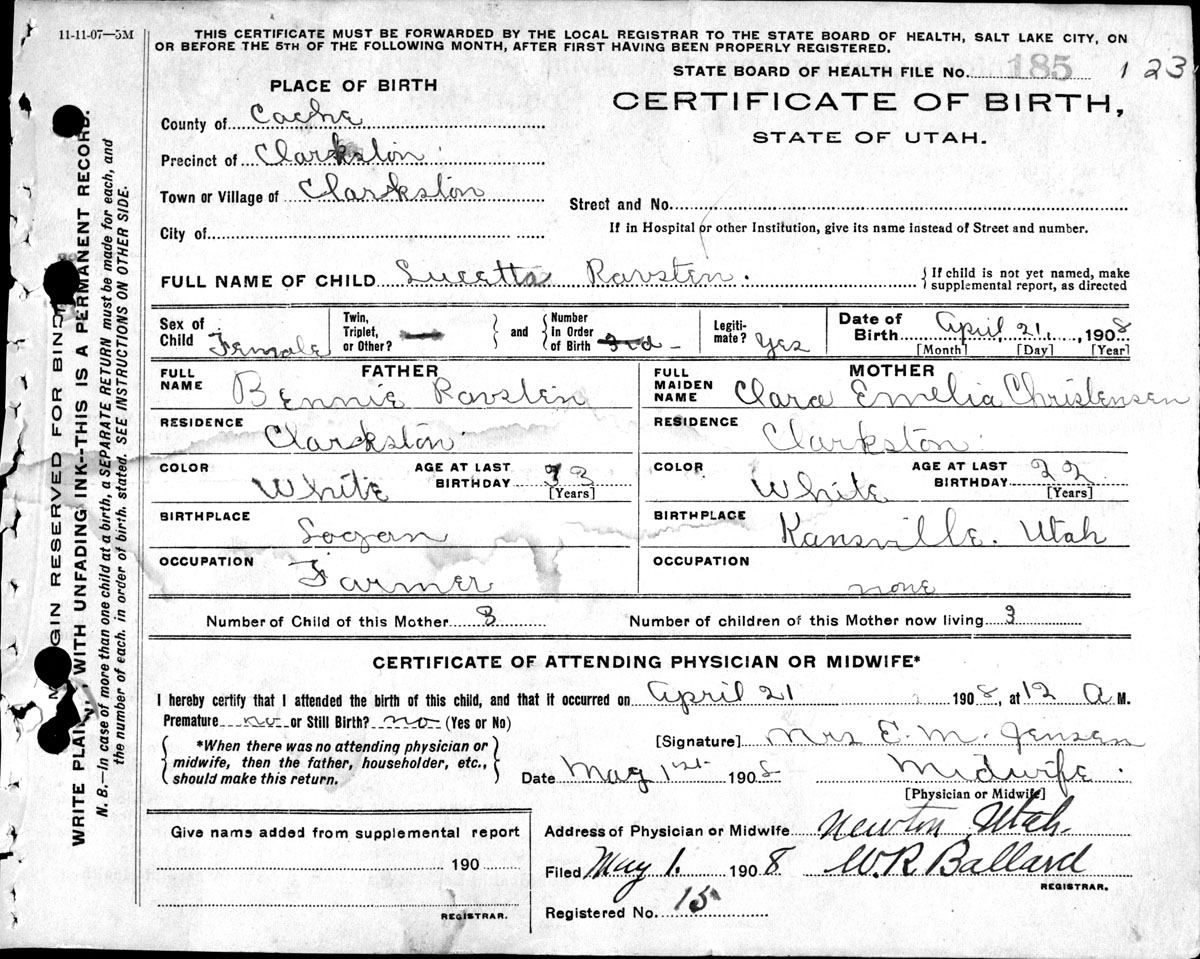 11-11-07—5M
THIS CERTIFICATE MUST BE FORWARDED BY THE LOCAL REGISTRAR TO THE STATE BOARD OF HEALTH, SALT LAKE CITY, ON
OR BEFORE THE 5TH OF THE FOLLOWING MONTH, AFTER FIRST HAVING BEEN PROPERLY REGISTERED.
STATE BOARD OF HEALTH FILE No. 185 123
PLACE OF BIRTH
CERTIFICATE OF BIRTH,
STATE OF UTAH.
County of Cache
Precinct of Clarkston
Town or Village of Clarkston
Street and No.
City of
If in Hospital or other Institution, give its name instead of Street and number.
FULL NAME OF CHILD Lucetta Ravsten. {If child is not yet named, make
supplemental report, as directed
Sex of Child Female
Twin, Triplet, or Other? —
} and {
Number in Order of Birth 3rd —
Legiti- mate? Yes
Date of Birth April, 21, 1908
[Month] [Day] [Year]
FATHER
FULL NAME Bennie Ravstein
RESIDENCE
Clarkston.
COLOR White AGE AT LAST BIRTHDAY 33 [Years]
BIRTHPLACE
Logan
OCCUPATION
Farmer
MOTHER
FULL MAIDEN NAME Clara Emelia Christensen
RESIDENCE
Clarkston.
COLOR White AGE AT LAST BIRTHDAY 22 [Years]
BIRTHPLACE
Kansville. Utah
OCCUPATION
none
Number of Child of this Mother 3 Number of children of this Mother now living 3
CERTIFICATE OF ATTENDING PHYSICIAN OR MIDWIFE*
I hereby certify that I attended the birth of this child, and that it occurred on April 21 1908, at 12 A M.
Premature no or Still Birth? no (Yes or No)
{ *When there was no attending physician or
midwife, then the father, householder, etc.,
should make this return. }
[Signature] Mrs E. M. Jensen
Date May 1st 1908 Midwife.
[Physician or Midwife]
Give name added from supplemental report
190
REGISTRAR.
Address of Physician or Midwife Newton Utah.
Filed May 1. 1908 W.R Ballard
REGISTRAR.
Registered No. 15
GIN RESERVED FOR BIND
WRITE PLAIN WITH UNFADING INK--THIS IS A PERMANENT RECORD.
N. B.—In case of more than one child at a birth, a SEPARATE RETURN must be made for each, and
the number of each, in order of birth, stated. SEE INSTRUCTIONS ON OTHER SIDE.